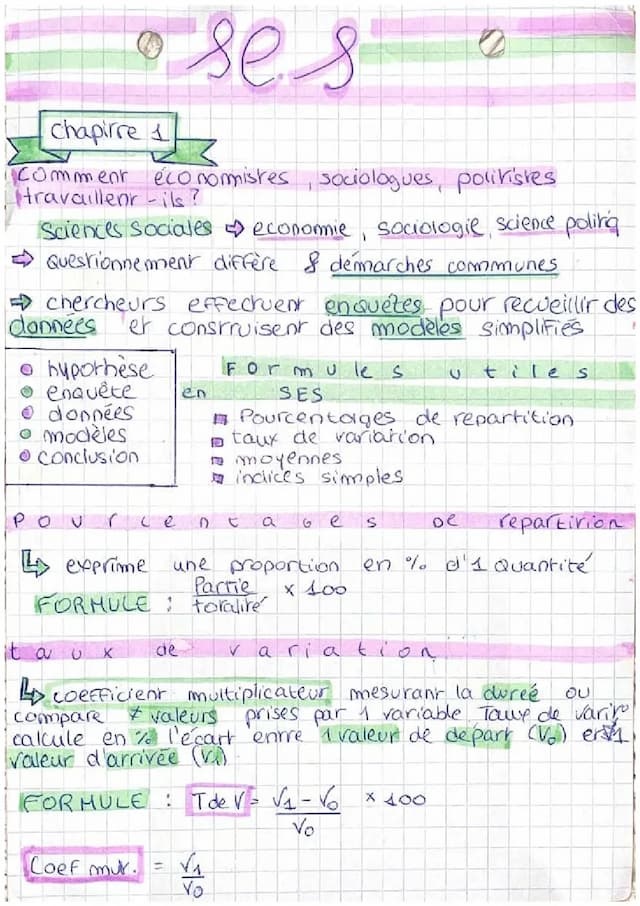 ses
Chapitre 1
Comment économistes, sociologues, politistes
travaillent-ils?
Sciences Sociales ⇨ economie, sociologie, science politiq
⇨ questionnement diffère & démarches communes
⇨ chercheurs effectuent enquêtes pour recueillir des
données et construisent des modèles simplifiés
• hypothèse
• enquête
• données
• modèles
• conclusion
Formules utiles
en SES
▪ Pourcentages de repartition
▪ taux de variation
▪ moyennes
▪ indices simples
Pourcentages de repartition
↳ exprime une proportion en % d'1 quantité
FORMULE : Partie / totalité × 100
taux de variation
↳ coefficient multiplicateur mesurant la dureé ou
compare ≠ valeurs prises par 1 variable Taux de
calcule en % l'écart entre 1 valeur de départ (V0) et 1
valeur d'arrivée (V1)
FORMULE : T de V = V1 - V0 / V0 × 100
Coef mut. = V1 / V0